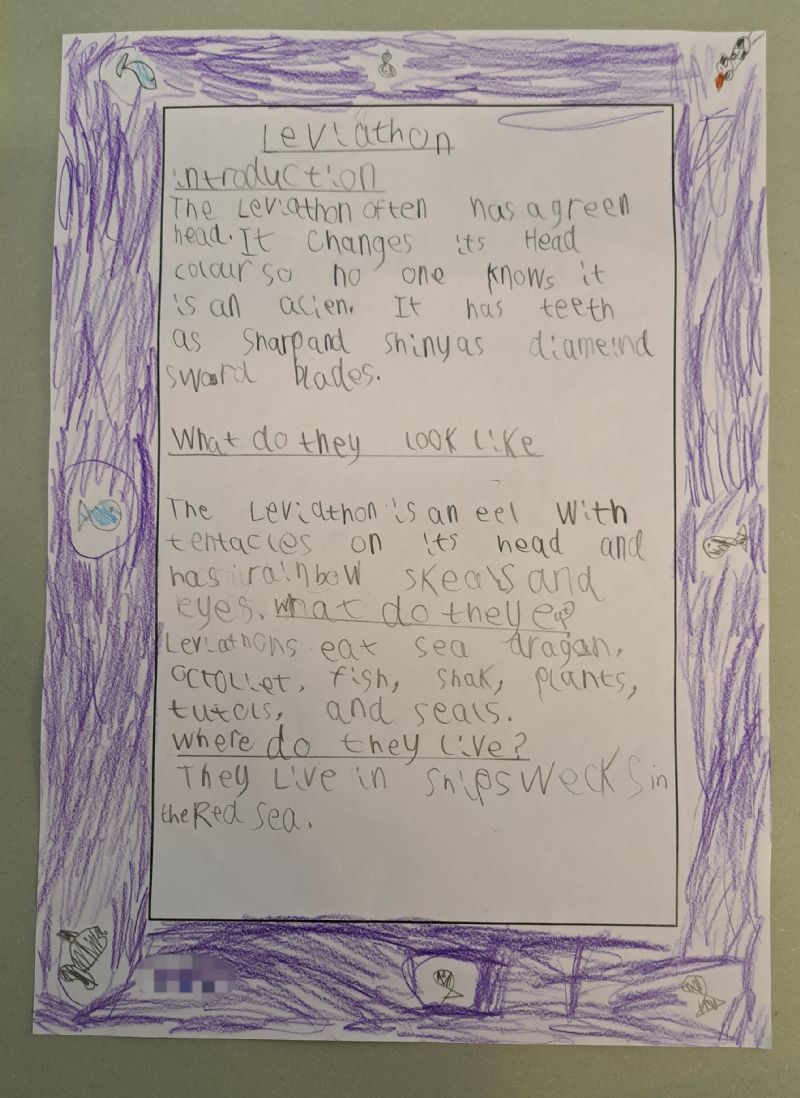 Leviathon
introduction
The Leviathon often has a green
head. It changes its Head
colour so no one knows it
is an alien. It has teeth
as sharp and shiny as diameind
sword blades.
What do they look like
The Leviathon is an eel with
tentacles on its head and
has rainbow skeals and
eyes. what do they eat?
Leviathons eat sea dragan,
fish, shak, plants,
tutols, and seals.
where do they live?
They live in ships wecks in
the Red sea.